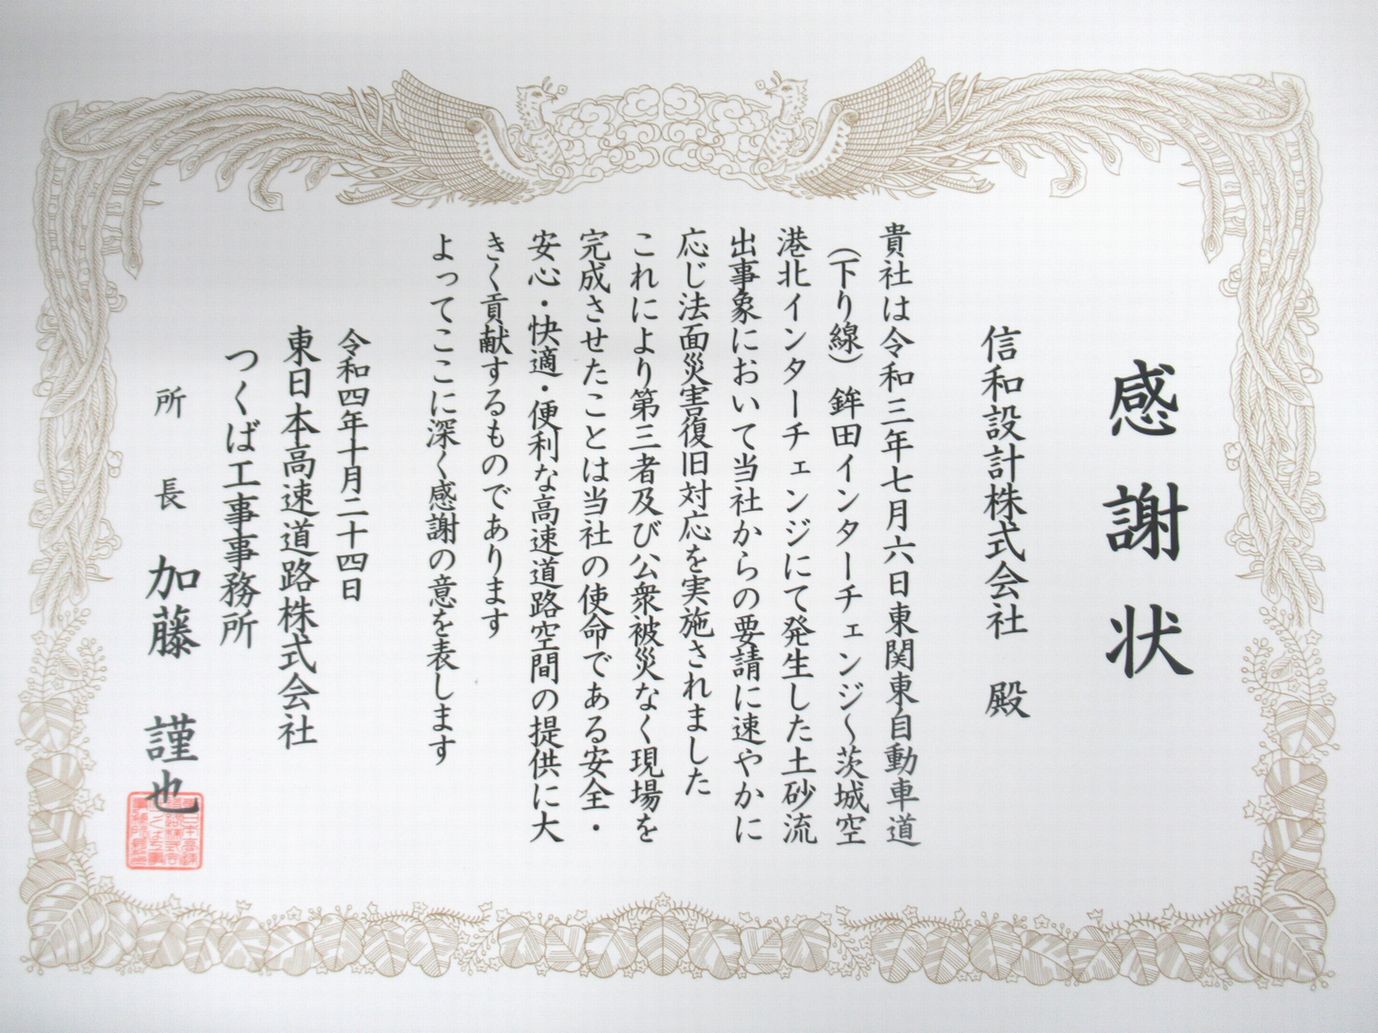 感謝状
信和設計株式会社 殿
貴社は令和三年七月六日東関東自動車道
(下り線)鉾田インターチェンジ〜茨城空
港北インターチェンジにて発生した土砂流
出事象において当社からの要請に速やかに
応じ法面災害復旧対応を実施されました
これにより第三者及び公衆被災なく現場を
完成させたことは当社の使命である安全・
安心・快適・便利な高速道路空間の提供に大
きく貢献するものであります
よってここに深く感謝の意を表します
令和四年十月二十四日
東日本高速道路株式会社
つくば工事事務所
所長 加藤 謹也